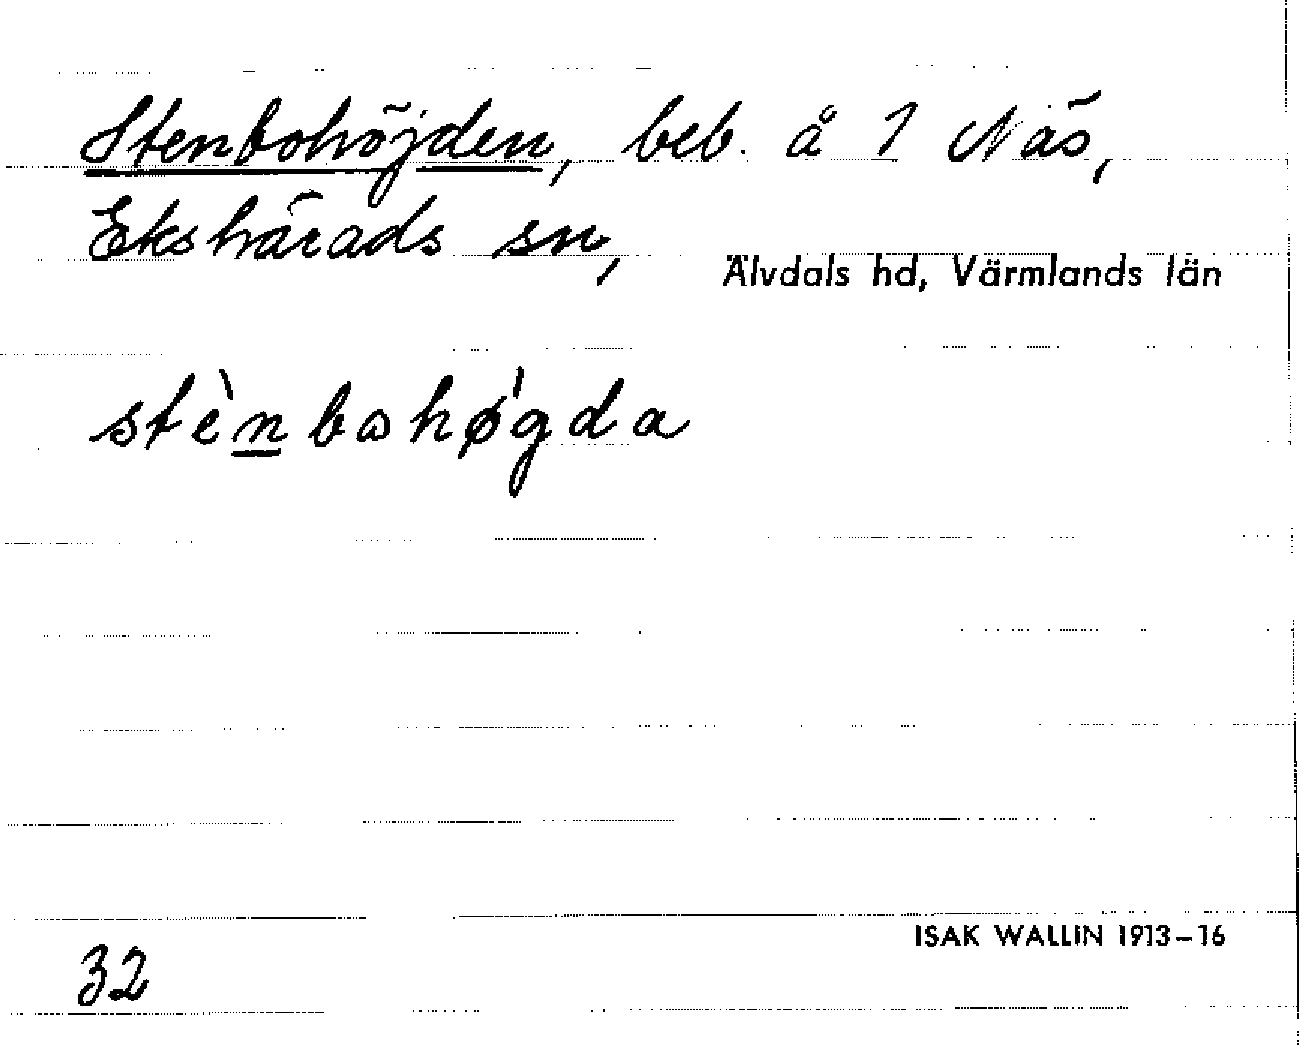 Stenbohöjden, beb. å 1 Näs,
Ekshärads sn,
Älvdals hd, Värmlands län
stèn̲bohø̀gda
ISAK WALLIN 1913-16
32